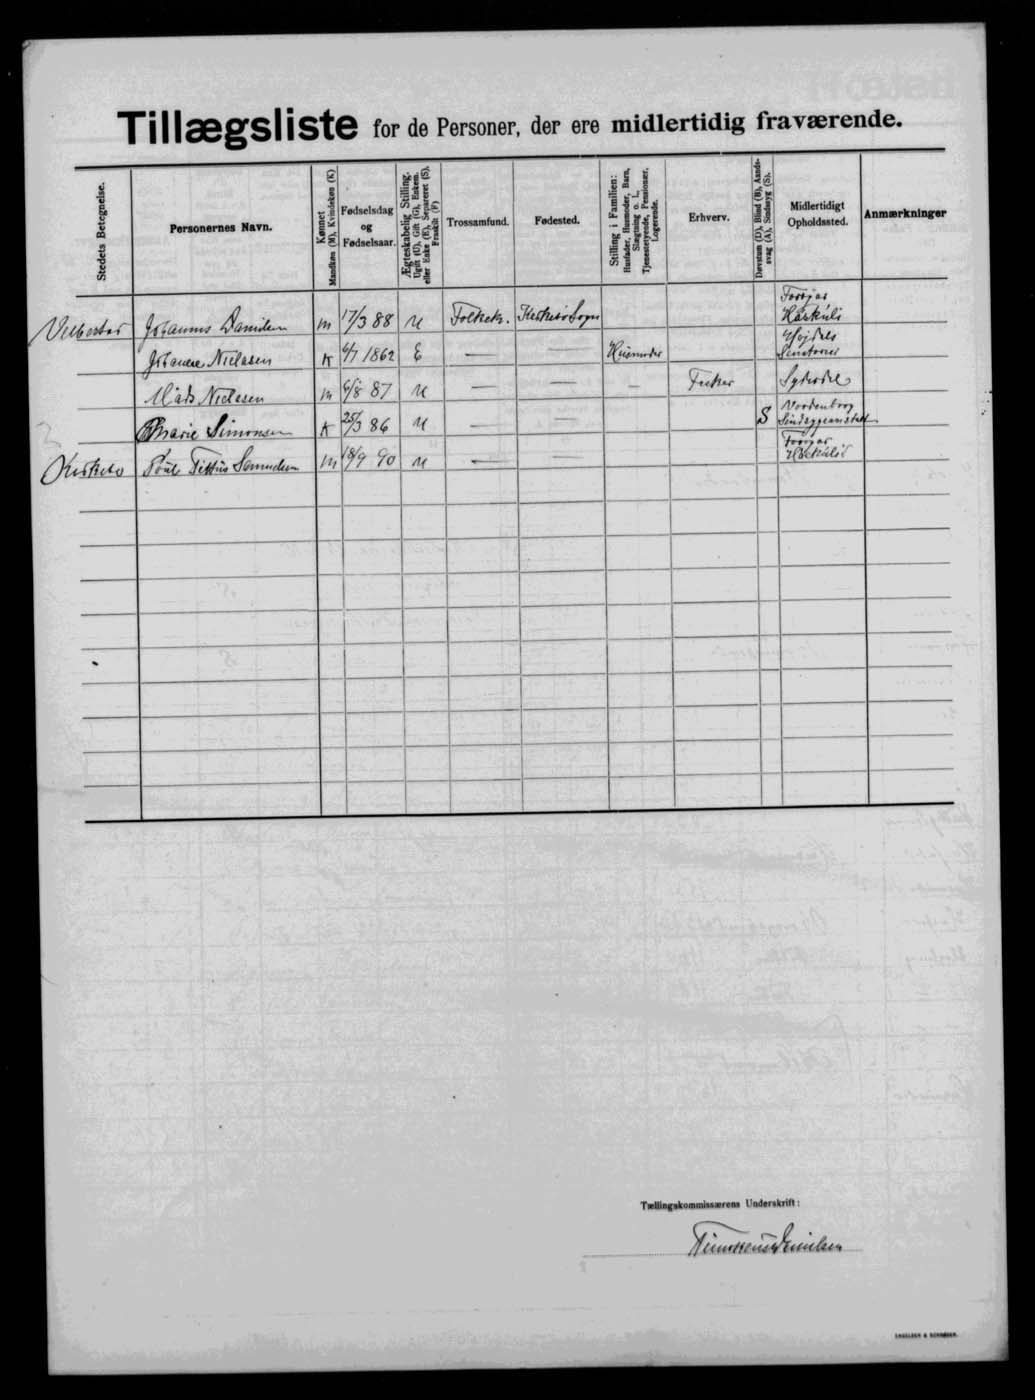 Tillægsliste for de Personer, der ere midlertidig fraværende.
Stedets Betegnelse.
Personernes Navn.
Kønnet
Mandkøn (M), Kvindekøn (K)
Fødselsdag
og
Fødselsaar.
Ægteskabelig Stilling.
Ugift (U), Gift (G), Enkem.
eller Enke (E), Separeret (S),
Fraskilt (F)
Trossamfund.
Fødested.
Stilling i Familien:
Husfader, Husmoder, Barn,
Slægtning o. l.,
Tjenestetyende, Pensionær,
Logerende.
Erhverv.
Døvstum (D), Blind (B), Aands-
svag (A), Sindssyg (S).
Midlertidigt
Opholdssted.
Anmærkninger
Velbestad Johannus Danielsen M 17/3 88 U Folkek. Kirkebø Sogn
Nielasen K 6/7 1862 E — — Husmoder
Mads Nielasen M 6/8 87 U — — — Fisker Syderdel
Marie Simonsen K 25/3 86 U — — S Vordenborg Sindsygeanstalt
Kirkebø Poul M 18/9 90 U — —
Tællingskommissærens Underskrift:
ENGELSEN & SCHRØDER.